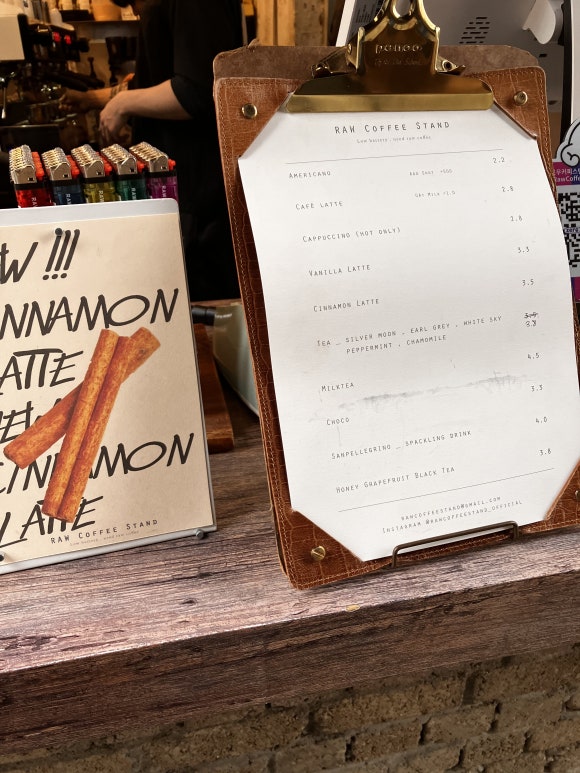 W !!!
NNAMON
ATTE
EW
CINNAMON
LATTE
RAW COFFEE STAND
penco
RAW COFFEE STAND
low battery , need raw coffee
AMERICANO ADD SHOT +500 2.2
CAFÉ LATTE OAT MILK +1.0 2.8
CAPPUCCINO (HOT ONLY) 2.8
VANILLA LATTE 3.3
CINNAMON LATTE 3.5
TEA _ SILVER MOON . EARL GREY . WHITE SKY 3.8
PEPPERMINT . CHAMOMILE
MILKTEA 4.5
CHOCO 3.3
SANPELLEGRINO _ SPACKLING DRINK 4.0
HONEY GRAPEFRUIT BLACK TEA 3.8
RAWCOFFEESTAND@GMAIL.COM
INSTAGRAM @RAWCOFFEESTAND_OFFICIAL